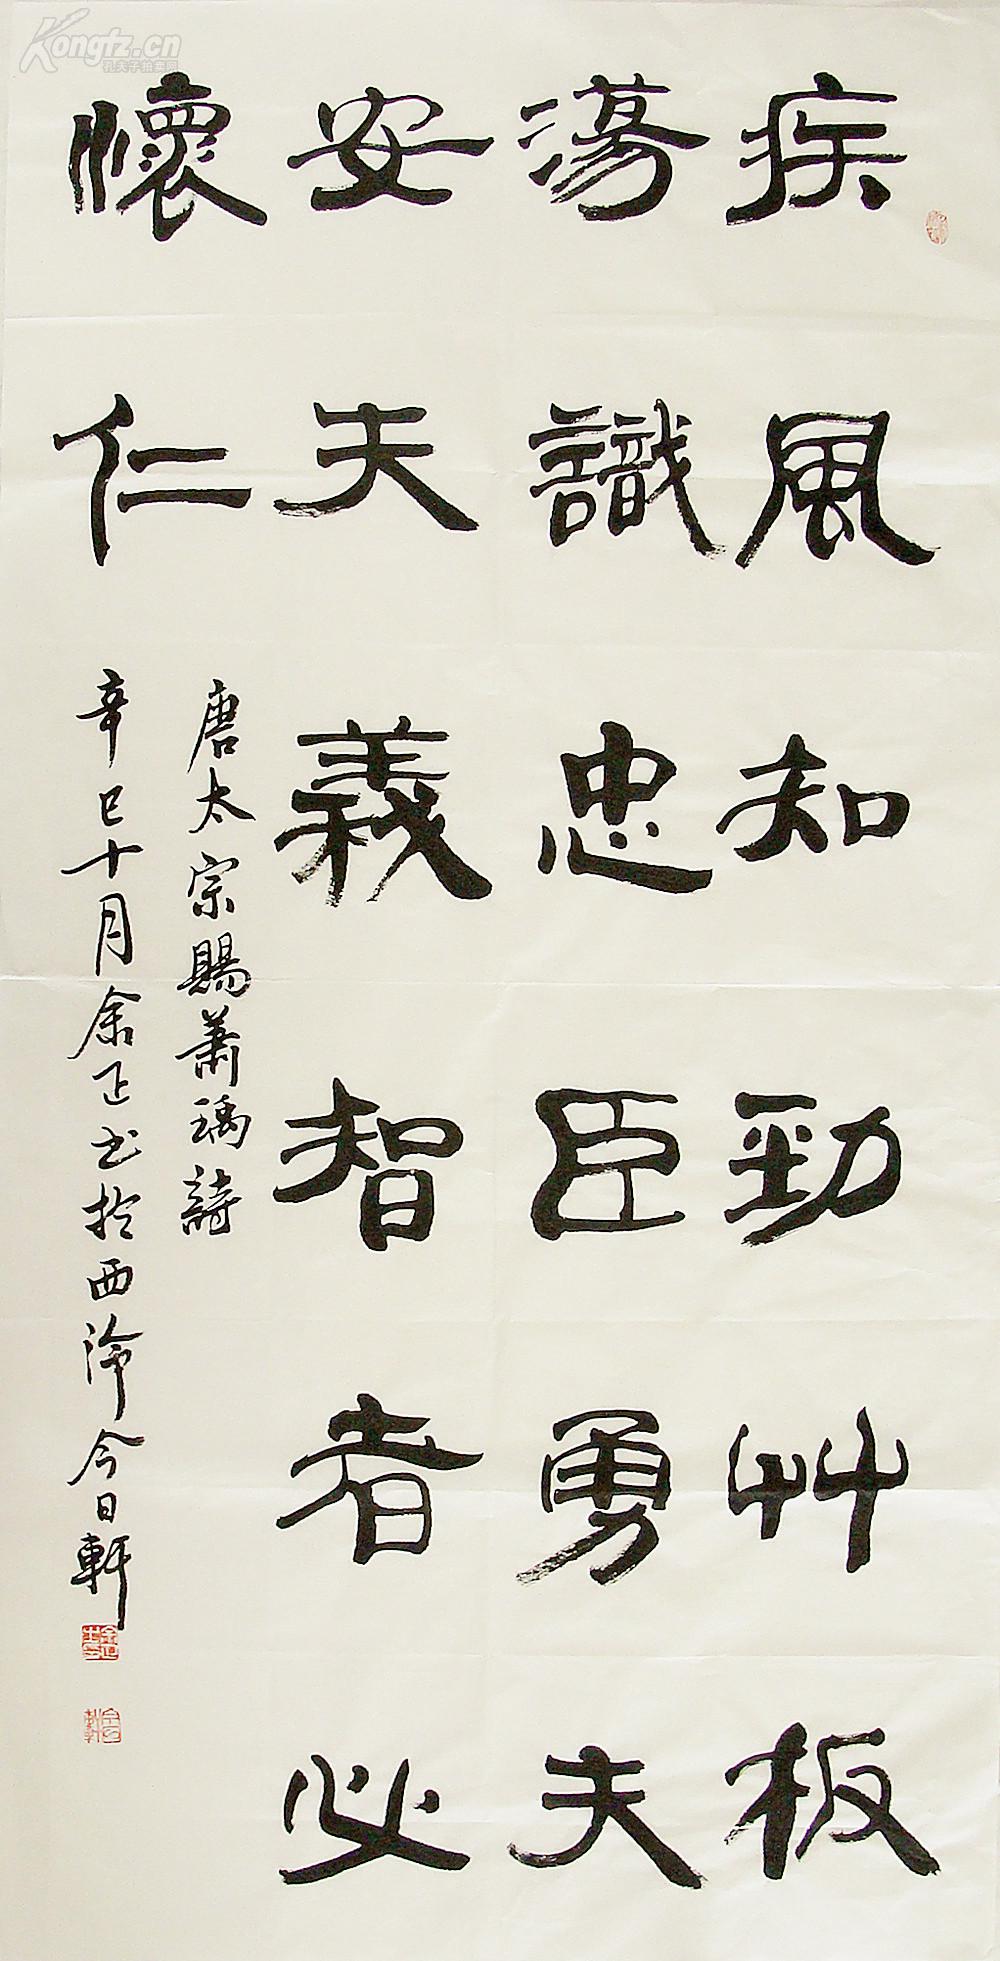 Kongfz.cn
孔夫子拍卖网
疾風知勁艸板
蕩識忠臣勇夫
安夫義智者必
懷仁
唐太宗賜蕭瑀詩
辛巳十月余正书於西泠今日軒